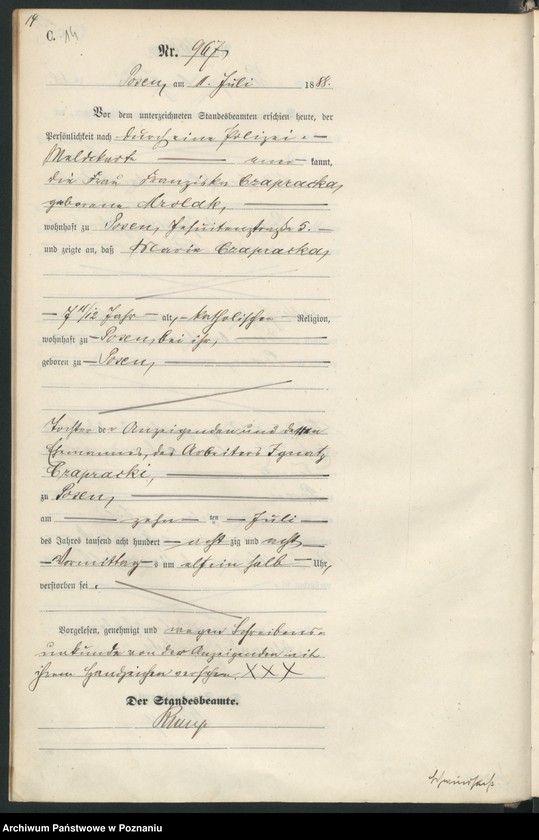 14
C. 14
Nr. 967
Posen, am 11. Juli 1888.
Vor dem unterzeichneten Standesbeamten erschien heute, der
Persönlichkeit nach durch eine Polizei-
Meldekarte kannt,
die Frau Franziska Czapracka,
geborene Mroldk,
wohnhaft zu Posen, Jesuitenstraße 5.
und zeigte an, daß Maria Czapracka,
7 11/12 Jahr alt, katholischer Religion,
wohnhaft zu Posen, bei ihr,
geboren zu Posen,
Tochter der Anzeigenden und dessen
Ehemannes, des Arbeiters Ignatz
Czapracki,
zu Posen,
am zehn ten Juli
des Jahres tausend acht hundert acht zig und acht
Vormittags um elfein halb Uhr,
verstorben sei.
Vorgelesen, genehmigt und wegen Schreibens-
unkunde von der Anzeigenden mit
ihrem Handzeichen versehen. XXX
Der Standesbeamte.
Archiwum Państwowe w Poznaniu